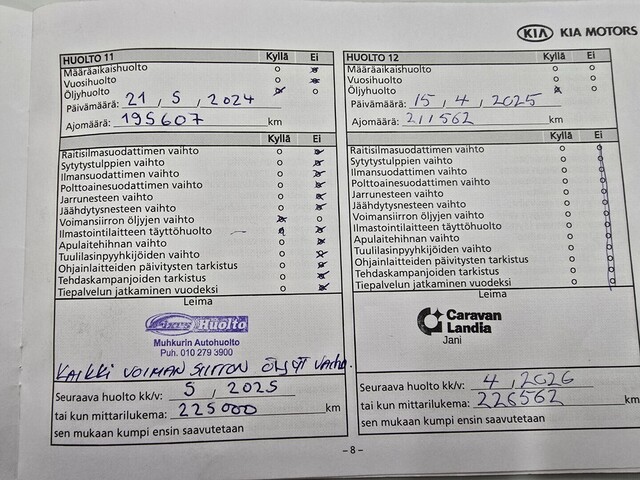 KIA KIA MOTORS
HUOLTO 11 Kyllä Ei
Määräaikaishuolto
Vuosihuolto
Öljyhuolto
Päivämäärä: 21 , 5 , 2024
Ajomäärä: 195607 km
Kyllä Ei
Raitisilmasuodattimen vaihto
Sytytystulppien vaihto
Ilmansuodattimen vaihto
Polttoainesuodattimen vaihto
Jarrunesteen vaihto
Jäähdytysnesteen vaihto
Voimansiirron öljyjen vaihto
Ilmastointilaitteen täyttöhuolto
Apulaitehihnan vaihto
Tuulilasinpyyhkijöiden vaihto
Ohjainlaitteiden päivitysten tarkistus
Tehdaskampanjoiden tarkistus
Tiepalvelun jatkaminen vuodeksi
Leima
Huolto
Muhkurin Autohuolto
Puh. 010 279 3900
KAIKKI VOIMAN SIIRRON ÖLJYT
Seuraava huolto kk/v: 5 , 2025
tai kun mittarilukema: 225000 km
sen mukaan kumpi ensin saavutetaan
HUOLTO 12 Kyllä Ei
Määräaikaishuolto
Vuosihuolto
Öljyhuolto
Päivämäärä: 15 , 4 , 2025
Ajomäärä: 211562 km
Kyllä Ei
Raitisilmasuodattimen vaihto
Sytytystulppien vaihto
Ilmansuodattimen vaihto
Polttoainesuodattimen vaihto
Jarrunesteen vaihto
Jäähdytysnesteen vaihto
Voimansiirron öljyjen vaihto
Ilmastointilaitteen täyttöhuolto
Apulaitehihnan vaihto
Tuulilasinpyyhkijöiden vaihto
Ohjainlaitteiden päivitysten tarkistus
Tehdaskampanjoiden tarkistus
Tiepalvelun jatkaminen vuodeksi
Leima
Caravan
Landia
Jani
Seuraava huolto kk/v: 4 , 2026
tai kun mittarilukema: 226562 km
sen mukaan kumpi ensin saavutetaan
– 8 –